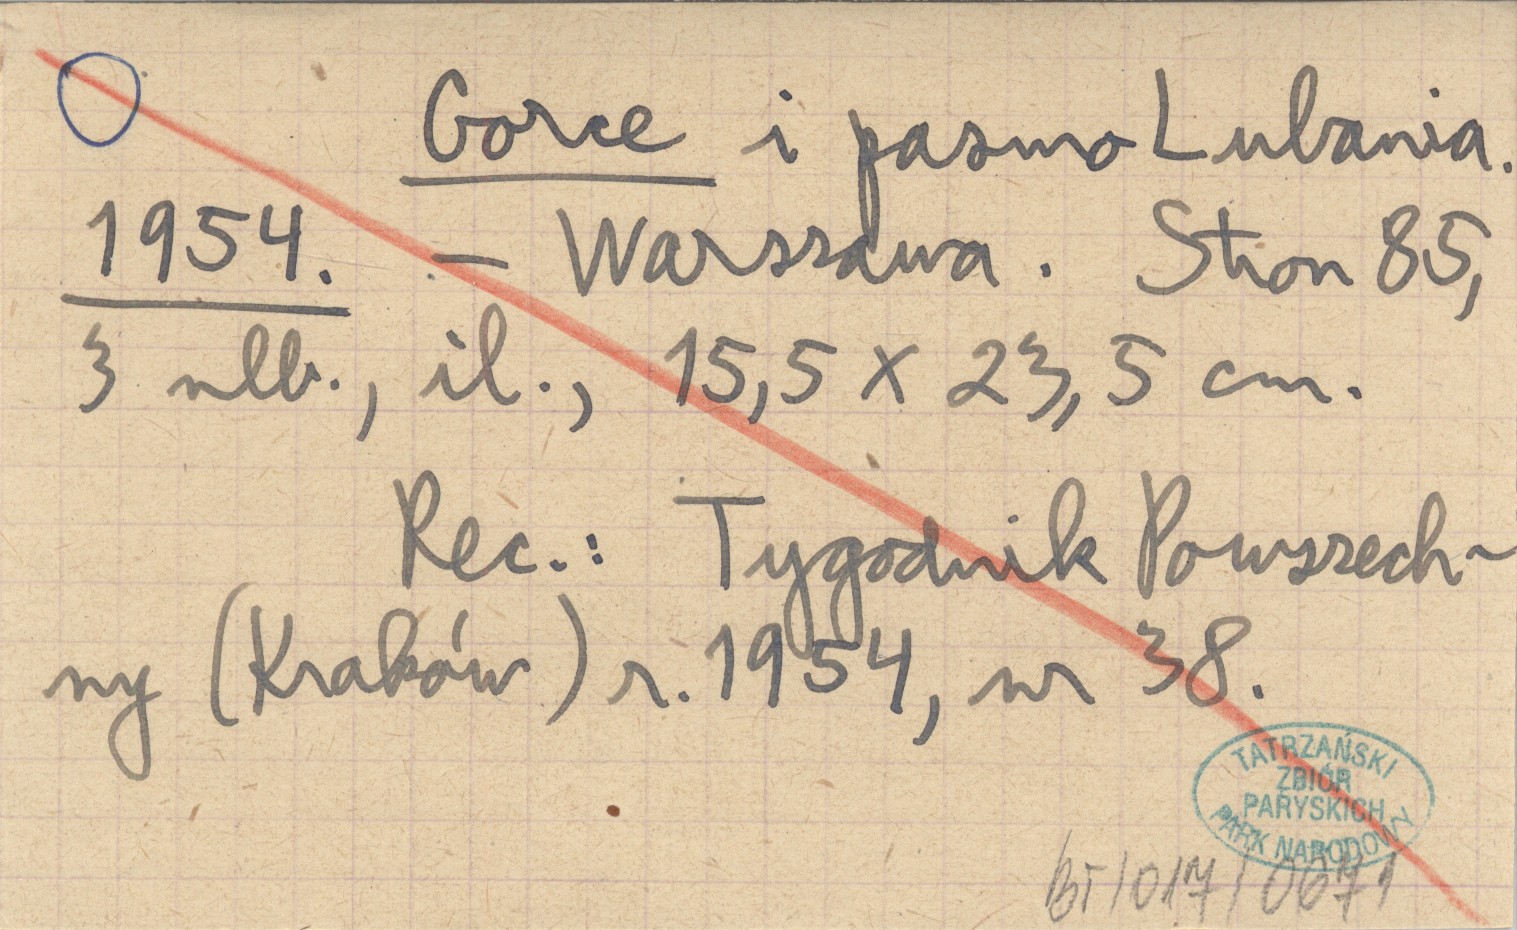 Gorce i pasmo Lubania.
1954. – Warszawa. Stron 85,
3 nlb., il., 15,5 x 23,5 cm.
Rec.: Tygodnik Powszech-
ny (Kraków) r. 1954, nr 38.
TATRZAŃSKI
ZBIÓR
PARYSKICH
PARK NARODOWY
BT/017/0671